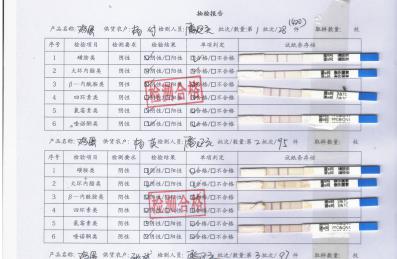 抽检报告
产品名称: 鸡蛋 供货农户: 杨 检测人员: 批次/数量:第 1 批次/28 件 取样数量: 枚
序号 检验项目 检测要求 检验结果 单项判定 试纸条存储
1 磺胺类 阴性 ☑阴性/□阳性 ☑合格/□不合格
2 大环内酯类 阴性 ☑阴性/□阳性 ☑合格/□不合格
3 β-内酰胺类 阴性 ☑阴性/□阳性 ☑合格/□不合格
4 四环素类 阴性 ☑阴性/□阳性 ☑合格/□不合格
5 氯霉素类 阴性 ☑阴性/□阳性 ☑合格/□不合格
6 喹诺酮类 阴性 ☑阴性/□阳性 ☑合格/□不合格
检测合格
产品名称: 鸡蛋 供货农户: 杨英 检测人员: 批次/数量:第 2 批次/95 件 取样数量: 枚
序号 检验项目 检测要求 检验结果 单项判定 试纸条存储
1 磺胺类 阴性 ☑阴性/□阳性 ☑合格/□不合格
2 大环内酯类 阴性 ☑阴性/□阳性 ☑合格/□不合格
3 β-内酰胺类 阴性 ☑阴性/□阳性 ☑合格/□不合格
4 四环素类 阴性 ☑阴性/□阳性 ☑合格/□不合格
5 氯霉素类 阴性 ☑阴性/□阳性 ☑合格/□不合格
6 喹诺酮类 阴性 ☑阴性/□阳性 ☑合格/□不合格
检测合格
产品名称: 鸡蛋 供货农户: 检测人员: 批次/数量:第 3 批次/97 件 取样数量: 枚